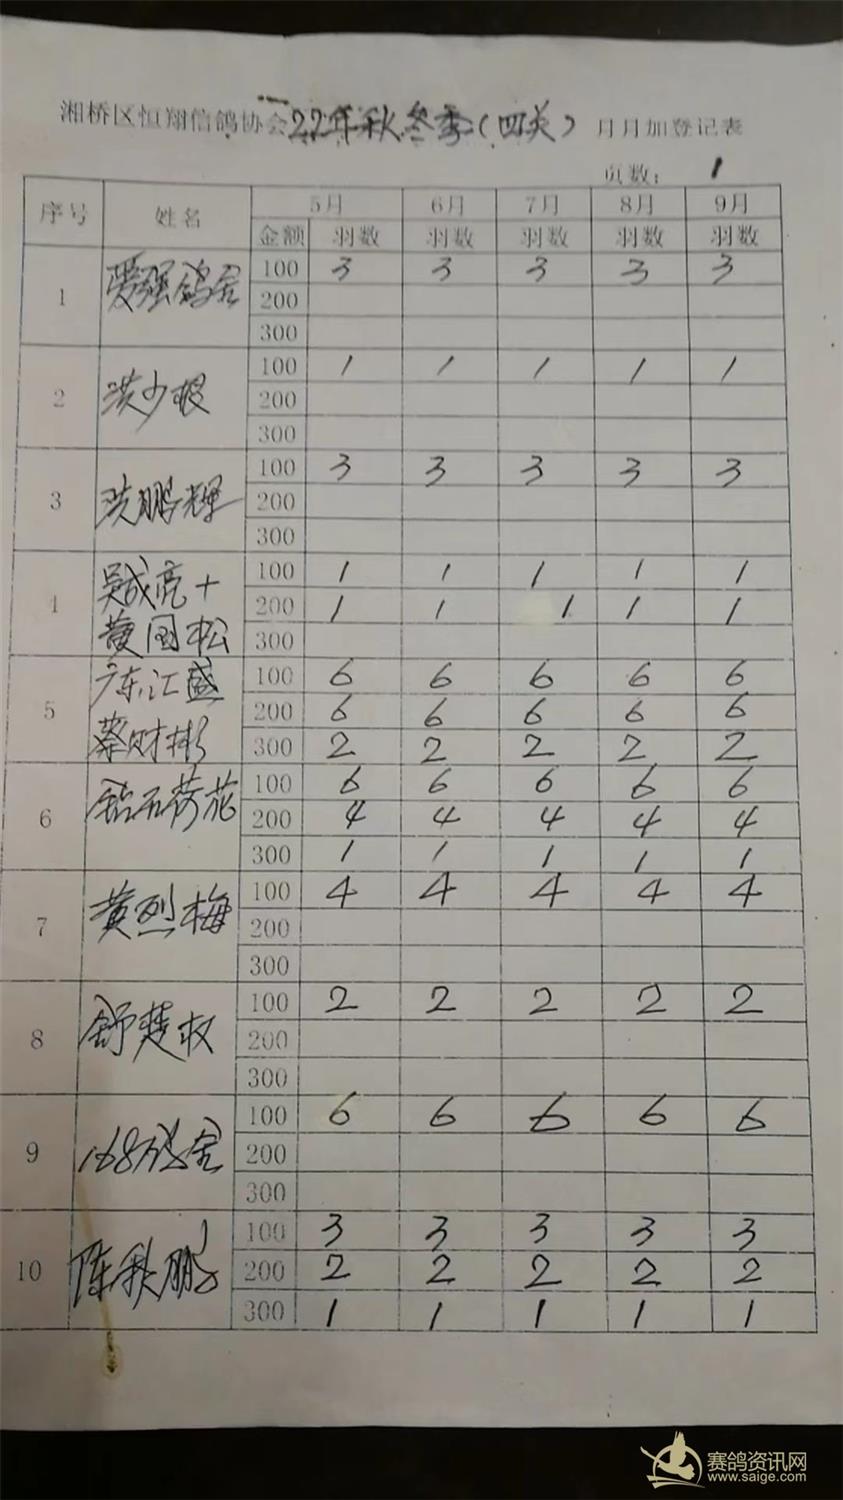 湘桥区恒翔信鸽协会22年秋冬季(四关)月月加登记表
页数: 1
序号 姓名 5月 6月 7月 8月 9月
金额 羽数 羽数 羽数 羽数 羽数
1 爱强鸽舍 100 3 3 3 3 3
200
300
2 洪少 100 1 1 1 1 1
200
300
3 洪鹏辉 100 3 3 3 3 3
200
300
4 吴成亮+ 100 1 1 1 1 1
黄国松 200 1 1 1 1 1
300
5 广东汇盛 100 6 6 6 6 6
200 6 6 6 6 6
蔡财彬 300 2 2 2 2 2
6 钻石荷花 100 6 6 6 6 6
200 4 4 4 4 4
300 1 1 1 1 1
7 黄烈梅 100 4 4 4 4 4
200
300
8 舒楚权 100 2 2 2 2 2
200
300
9 168鸽舍 100 6 6 6 6 6
200
300
10 陈秋鹏 100 3 3 3 3 3
200 2 2 2 2 2
300 1 1 1 1 1
赛鸽资讯网
www.saige.com